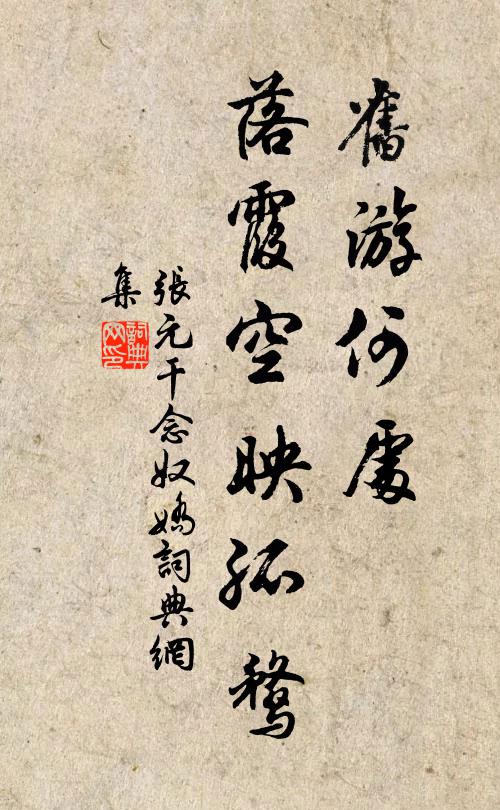 舊游何處
落霞空映孤鶩
張元干念奴嬌詞典網
集
詞典网印